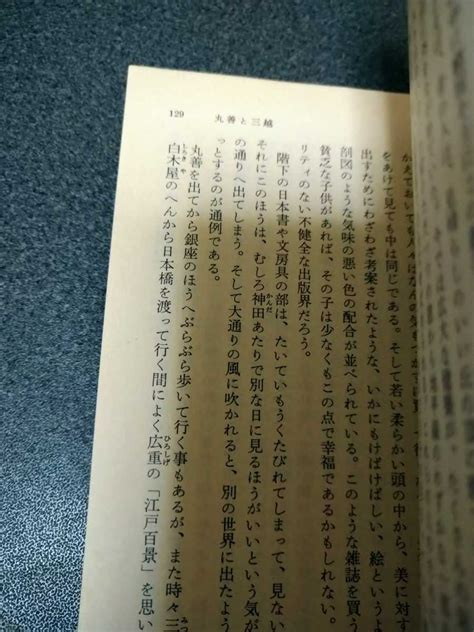 129 丸善と三越
をあけて見ても中は同じである。そして若い柔らかい頭の中から、美に対す
出すためにわざわざ考案されたような、いかにもけばけばしい、絵というよ
剖図のような気味の悪い色の配合が並べられている。このような雑誌を買う
貧乏な子供があれば、その子は少なくもこの点で幸福であるかもしれない。
リティのない不健全な出版界だろう。
階下の日本書や文房具の部は、たいていもうくたびれてしまって、見ない
それにこのほうは、むしろ神田あたりで別な日に見るほうがいいという気が
の通りへ出てしまう。そして大通りの風に吹かれると、別の世界に出たよう
っとするのが通例である。
丸善を出てから銀座のほうへぶらぶら歩いて行く事もあるが、また時々三
白木屋のへんから日本橋を渡って行く間によく広重の「江戸百景」を思い